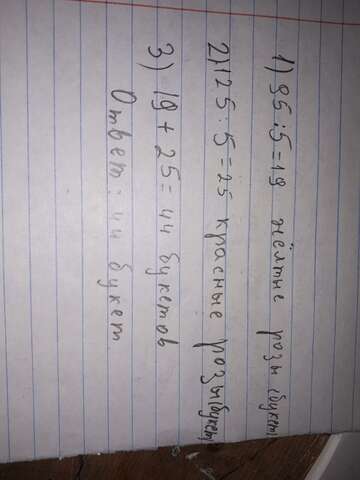 1) 95:5=19 жёлтые розы (букет)
2) 125:5=25 красные розы (букет)
3) 19+25=44 букетов
Ответ: 44 букет